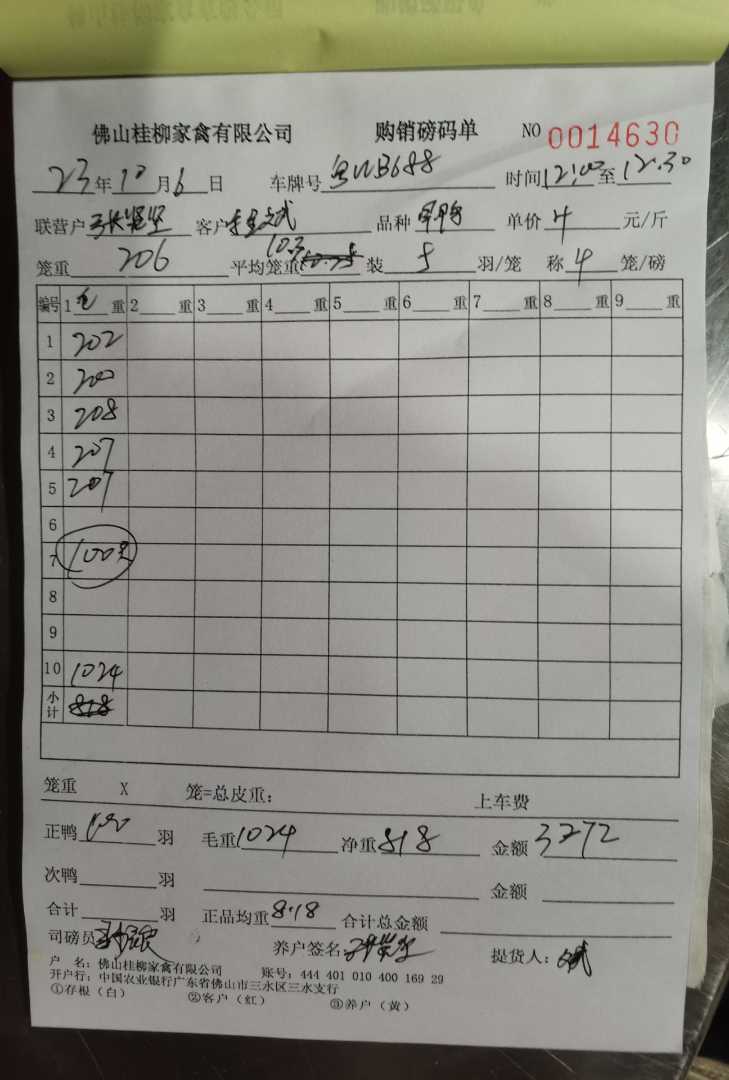 佛山桂柳家禽有限公司 购销磅码单 NO 0014630
23年10月6日 车牌号粤WB688 时间12:00至12.30
联营户 客户 文武 品种 单价4元/斤
笼重206 平均笼重10.3 装5羽/笼 称4笼/磅
编号 1毛重 2重 3重 4重 5重 6重 7重 8重 9重
1 202
2 200
3 208
4 207
5 207
6
7 100只
8
9
10 1024
小计 818
笼重 X 笼=总皮重: 上车费
正鸭100羽 毛重1024 净重818 金额3272
次鸭羽 金额
合计羽 正品均重8.18 合计总金额
司磅员 养户签名 提货人: 武
户 名: 佛山桂柳家禽有限公司 账号: 444 401 010 400 169 29
开户行: 中国农业银行广东省佛山市三水区三水支行
①存根(白) ②客户(红) ③养户(黄)